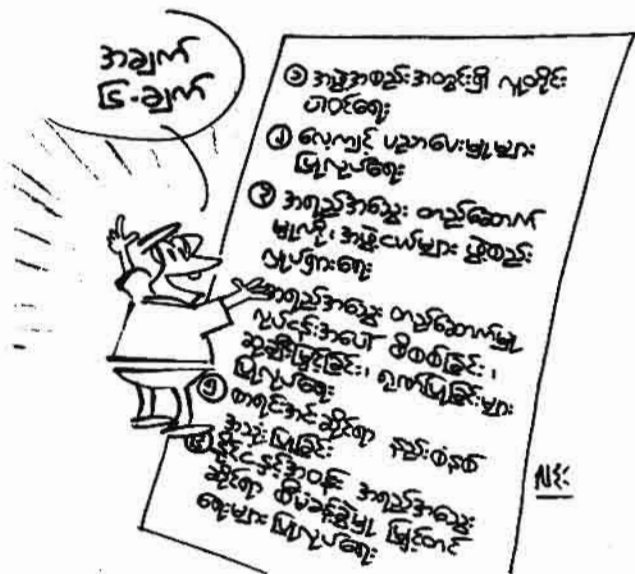 အချက်
၆-ချက်
၁ အဖွဲ့အစည်းအတွင်းရှိ လူတိုင်း
ပါဝင်ရေး
၂ လေ့ကျင့် ပညာပေးမှုများ
ပြုလုပ်ရေး
၃ အရည်အသွေး တည်ဆောက်
မှုလို့၊ အဖွဲ့ငယ်များ ဖွဲ့စည်း
လှုပ်ရှားရေး
အရည်အသွေး တည်ဆောက်မှု
လုပ်ငန်းအပေါ် စိစစ်ခြင်း၊
ဆုချီးမြှင့်ခြင်း၊ ဂုဏ်ပြုခြင်းများ
ပြုလုပ်ရေး
၅ စာရင်းအင်းဆိုင်ရာ နည်းစံနစ်
အသုံးပြုခြင်း
၆ နိုင်ငံနှင့်အဝန်း အရည်အသွေး
ဆိုင်ရာ စီမံခန့်ခွဲမှု မြှင့်တင်
ရေးများ ပြုလုပ်ရေး